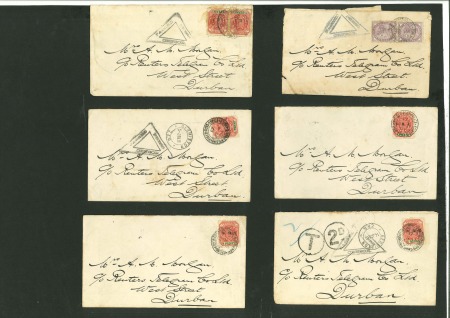 Mr A. M. Morgan
c/o Reuters Telegram Co Ltd
West Street
Durban
Mr A. M. Morgan
c/o Reuters Telegram Co Ltd
West Street
Durban
Mr A. M. Morgan
c/o Reuters Telegram Co Ltd
West Street
Durban
Mr A. M. Morgan
c/o Reuters Telegram Co Ltd
West Street
Durban
Mr A. M. Morgan
c/o Reuters Telegram Co Ltd
West Street
Durban
T 2D
Mr A. M. Morgan
c/o Reuters Telegram Co Ltd
West Street
Durban